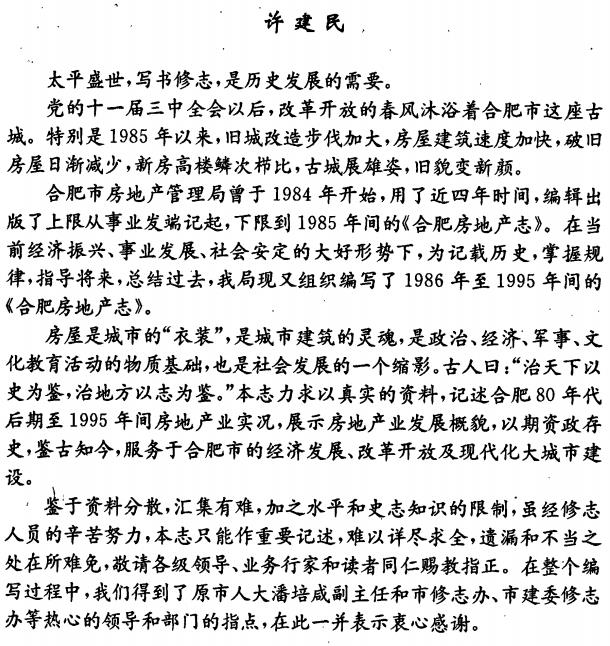 许建民
太平盛世,写书修志,是历史发展的需要。
党的十一届三中全会以后,改革开放的春风沐浴着合肥市这座古
城。特别是1985年以来,旧城改造步伐加大,房屋建筑速度加快,破旧
房屋日渐减少,新房高楼鳞次栉比,古城展雄姿,旧貌变新颜。
合肥市房地产管理局曾于1984年开始,用了近四年时间,编辑出
版了上限从事业发端记起,下限到1985年间的《合肥房地产志》。在当
前经济振兴、事业发展、社会安定的大好形势下,为记载历史,掌握规
律,指导将来,总结过去,我局现又组织编写了1986年至1995年间的
《合肥房地产志》。
房屋是城市的“衣装”,是城市建筑的灵魂,是政治、经济、军事、文
化教育活动的物质基础,也是社会发展的一个缩影。古人曰:“治天下以
史为鉴,治地方以志为鉴。”本志力求以真实的资料,记述合肥80年代
后期至1995年间房地产业实况,展示房地产业发展概貌,以期资政存
史,鉴古知今,服务于合肥市的经济发展、改革开放及现代化大城市建
设。
鉴于资料分散,汇集有难,加之水平和史志知识的限制,虽经修志
人员的辛苦努力,本志只能作重要记述,难以详尽求全,遗漏和不当之
处在所难免,敬请各级领导、业务行家和读者同仁赐教指正。在整个编
写过程中,我们得到了原市人大潘培咸副主任和市修志办、市建委修志
办等热心的领导和部门的指点,在此一并表示衷心感谢。